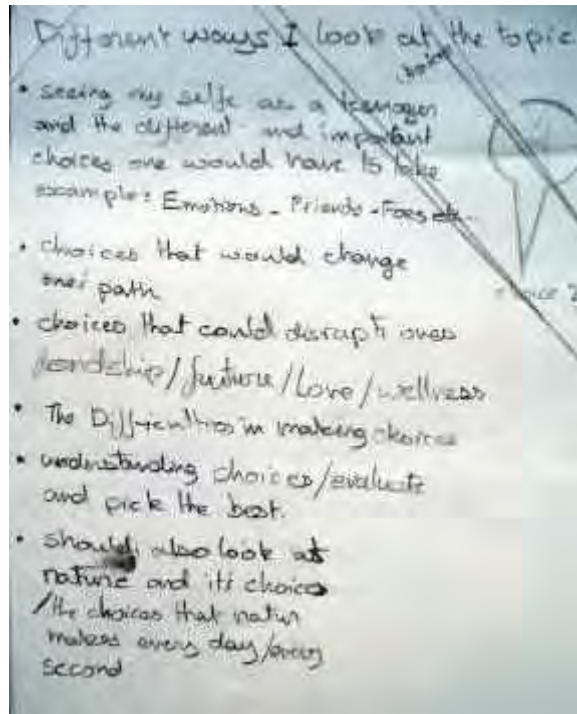 Different ways I look at the topic
choices
• seeing my selfe as a teenager
and the different and important
choices one would have to take
example: Emotions - Friends - Foes etc...
• choices that would change
ones path
• choices that could disrupt ones
friendship/future/Love/wellness
• The Difficulties in making choices
• understanding choices/evaluate
and pick the best.
• should also look at
nature and its choices
/the choices that natur
makes every day/every
second